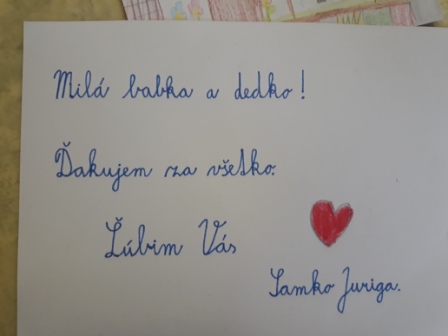 Milá babka a dedko!
Ďakujem za všetko.
Ľúbim Vás
Samko Juriga.